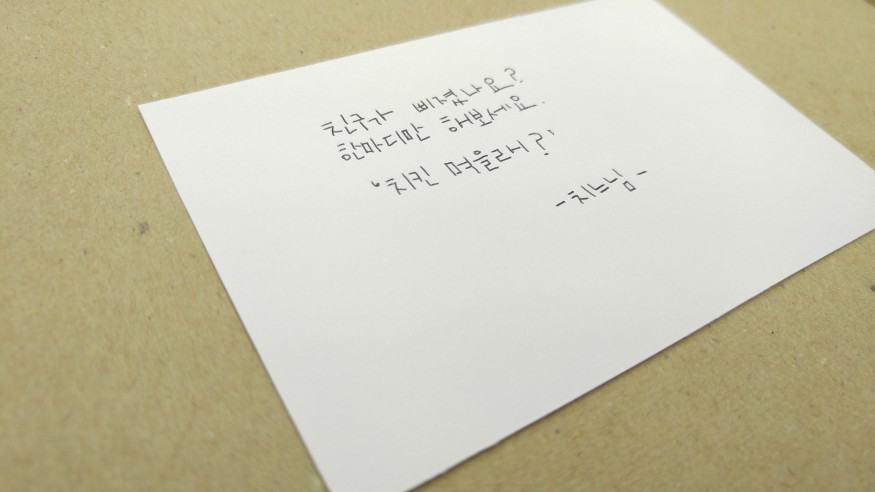 친구가 삐졌나요?
한마디만 해보세요.
'치킨 먹을래?'
-치느님-